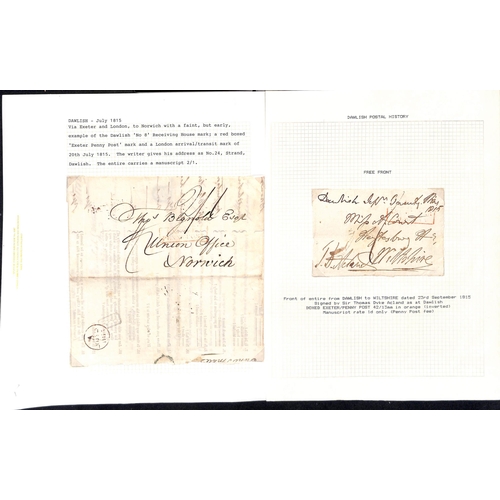 DAWLISH - July 1815
Via Exeter and London, to Norwich with a faint, but early,
example of the Dawlish 'No 8' Receiving House mark; a red boxed
'Exeter Penny Post' mark and a London arrival/transit mark of
25th July 1815. The writer gives his address as No.24, Strand,
Dawlish. The entire carries a manuscript 2/1.
Esqr
Union Office
Norwich
DAWLISH POSTAL HISTORY
FREE FRONT
Dawlish
1815
Miss
Wiltshire
Front of entire from DAWLISH to WILTSHIRE dated 23rd September 1815
Signed by Sir Thomas Dyke Acland as at Dawlish
BOXED EXETER/PENNY POST 42/13mm in orange (inverted)
Manuscript rate 1d only (Penny Post fee)